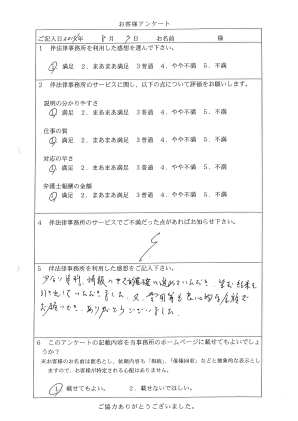 お客様アンケート
ご記入日 8月 日 お名前 様
1 伴法律事務所を利用した感想を選んで下さい。
①満足 2．まあまあ満足 3普通 4．やや不満 5．不満
2 伴法律事務所のサービスに関し、以下の点について評価をお願いします。
説明の分かりやすさ
①満足 2．まあまあ満足 3普通 4．やや不満 5．不満
仕事の質
①満足 2．まあまあ満足 3普通 4．やや不満 5．不満
対応の早さ
①満足 2．まあまあ満足 3普通 4．やや不満 5．不満
弁護士報酬の金額
①満足 2．まあまあ満足 3普通 4．やや不満 5．不満
4 伴法律事務所のサービスでご不満だった点があればお知らせ下さい。
5 伴法律事務所を利用した感想をご記入下さい。
少ない資料、情報の中で 進めていただき、望む結果を
引き出していただきました。又、費用等も良心的な金額で
ありがとうございました。
6 このアンケートの記載内容を当事務所のホームページに載せてもよいでしょ
うか？
※お客様のお名前は匿名とし、依頼内容も「相続」、「債権回収」などと抽象的な表示とし
ますので、お客様が特定される心配はありません。
①載せてもよい。 2．載せないでほしい。
ご協力ありがとうございました。